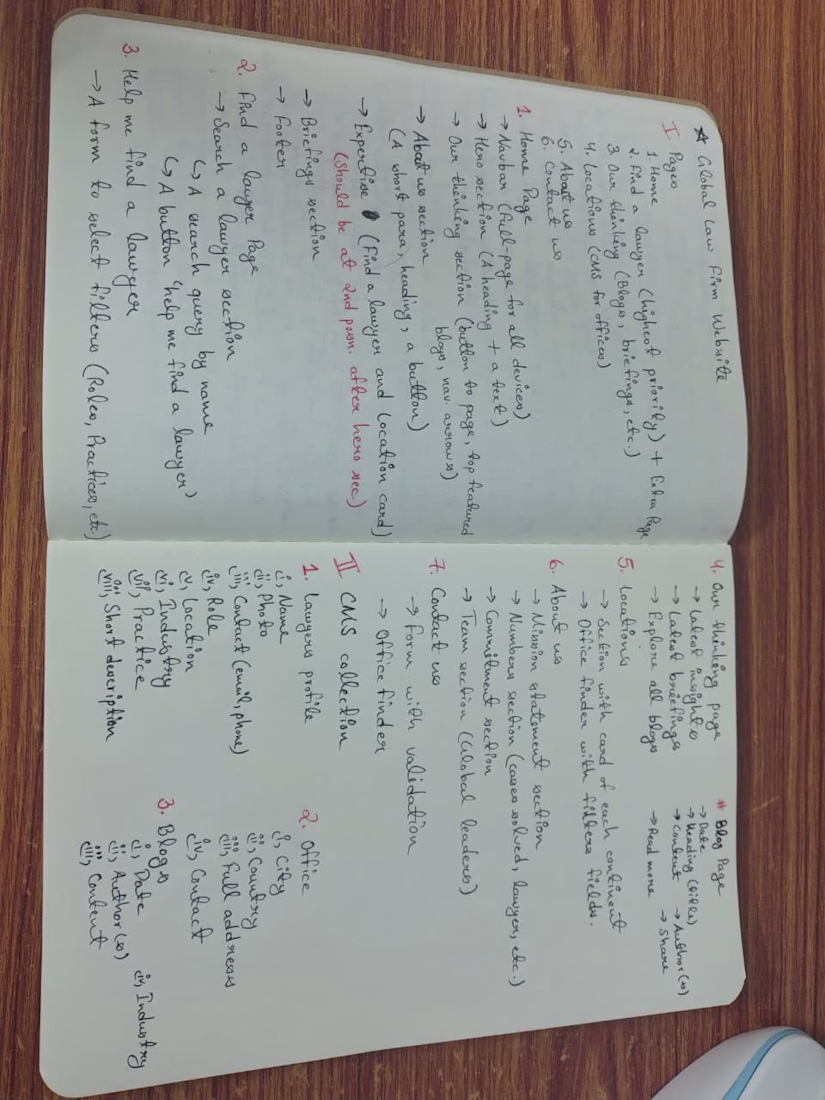 ★ Global Law Firm Website
I Pages
1. Home
2. Find a lawyer (highest priority) + Extra Page
3. Our thinking (Blogs, briefings, etc.)
4. Locations (CMS for offices)
5. About us
6. Contact us
1. Home Page
→ Navbar (full-page for all devices)
→ Hero section (A heading + a text)
→ Our thinking section (button to page, top featured
blogs, nav. arrows)
→ About us section
(A short para, heading, a button)
→ Expertise (Find a lawyer and location card)
(Should be at 2nd posn. after hero sec)
→ Briefings section
→ Footer
2. Find a lawyer Page
→ Search a lawyer section
↳ A search query by name
↳ A button 'help me find a lawyer'
3. Help me find a lawyer
→ A form to select filters (Roles, Practices, etc)
4. Our thinking page
→ Latest insights
→ Latest briefings
→ Explore all blogs
# Blog Page
→ Date
→ Heading (title)
→ Content → Author(s)
→ Read more → Share
5. Locations
→ Section with card of each continent
→ Office finder with filters fields.
6. About us
→ Mission statement section
→ Numbers section (cases solved, lawyer, etc.)
→ Commitment section
→ Team section (Global leaders)
7. Contact us
→ Form with validation
→ Office finder
II CMS collection
1. Lawyers profile
i, Name
ii, Photo
iii, Contact (email, phone)
iv, Role
v, Location
vi, Industry
vii, Practice
viii, Short description
2. Office
i, City
ii, Country
iii, Full address
iv, Contact
3. Blogs
i, Date iv, Industry
ii, Author(s)
iii, Content